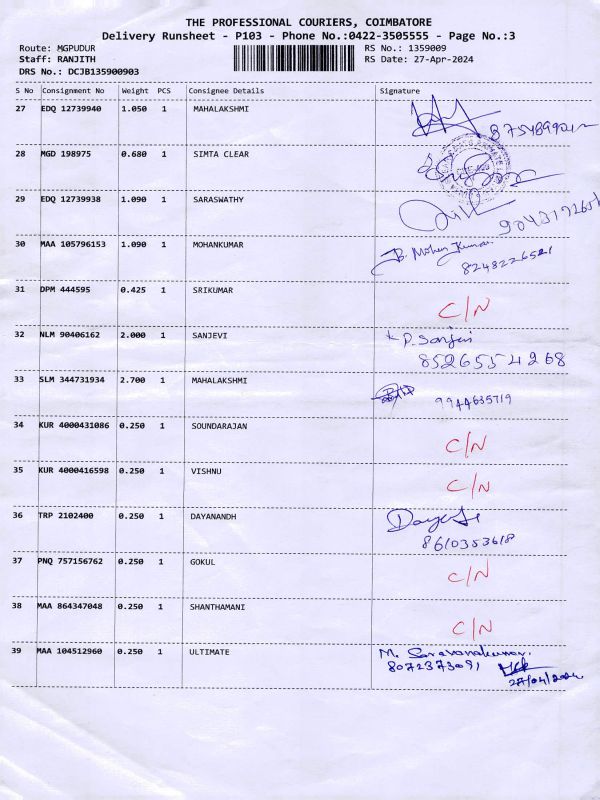 THE PROFESSIONAL COURIERS, COIMBATORE
Delivery Runsheet - P103 - Phone No.:0422-3505555 - Page No.:3
Route: MGPUDUR RS No.: 1359009
Staff: RANJITH RS Date: 27-Apr-2024
DRS No.: DCJB135900903
S No Consignment No Weight PCS Consignee Details Signature
27 EDQ 12739940 1.050 1 MAHALAKSHMI
28 MGD 198975 0.680 1 SIMTA CLEAR
29 EDQ 12739938 1.090 1 SARASWATHY
30 MAA 105796153 1.090 1 MOHANKUMAR B. Mohan Kumar
8248226521
31 DPM 444595 0.425 1 SRIKUMAR C/N
32 NLM 90406162 2.000 1 SANJEVI P. Sanjevi
8526554268
33 SLM 344731934 2.700 1 MAHALAKSHMI 9944635719
34 KUR 4000431086 0.250 1 SOUNDARAJAN C/N
35 KUR 4000416598 0.250 1 VISHNU C/N
36 TRP 2102400 0.250 1 DAYANANDH
8610353618
37 PNQ 757156762 0.250 1 GOKUL C/N
38 MAA 864347048 0.250 1 SHANTHAMANI C/N
39 MAA 104512960 0.250 1 ULTIMATE M. Saravanakumar.
8072373091
27/04/2024